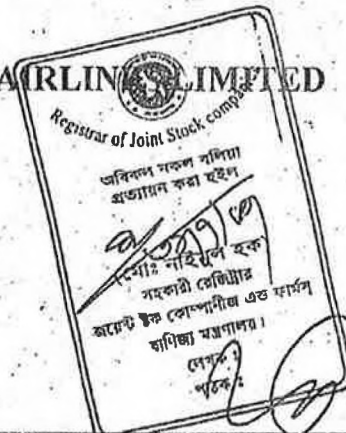 AIRLINES LIMITED
Registrar of Joint Stock compa
অবিকল নকল বলিয়া
প্রত্যায়ন করা হইল
(মোঃ নাইমুল হক)
সহকারী রেজিষ্ট্রার
জয়েন্ট ষ্টক কোম্পানীজ এন্ড ফার্মস্
বাণিজ্য মন্ত্রণালয়।
লেখক :
পাঠক :